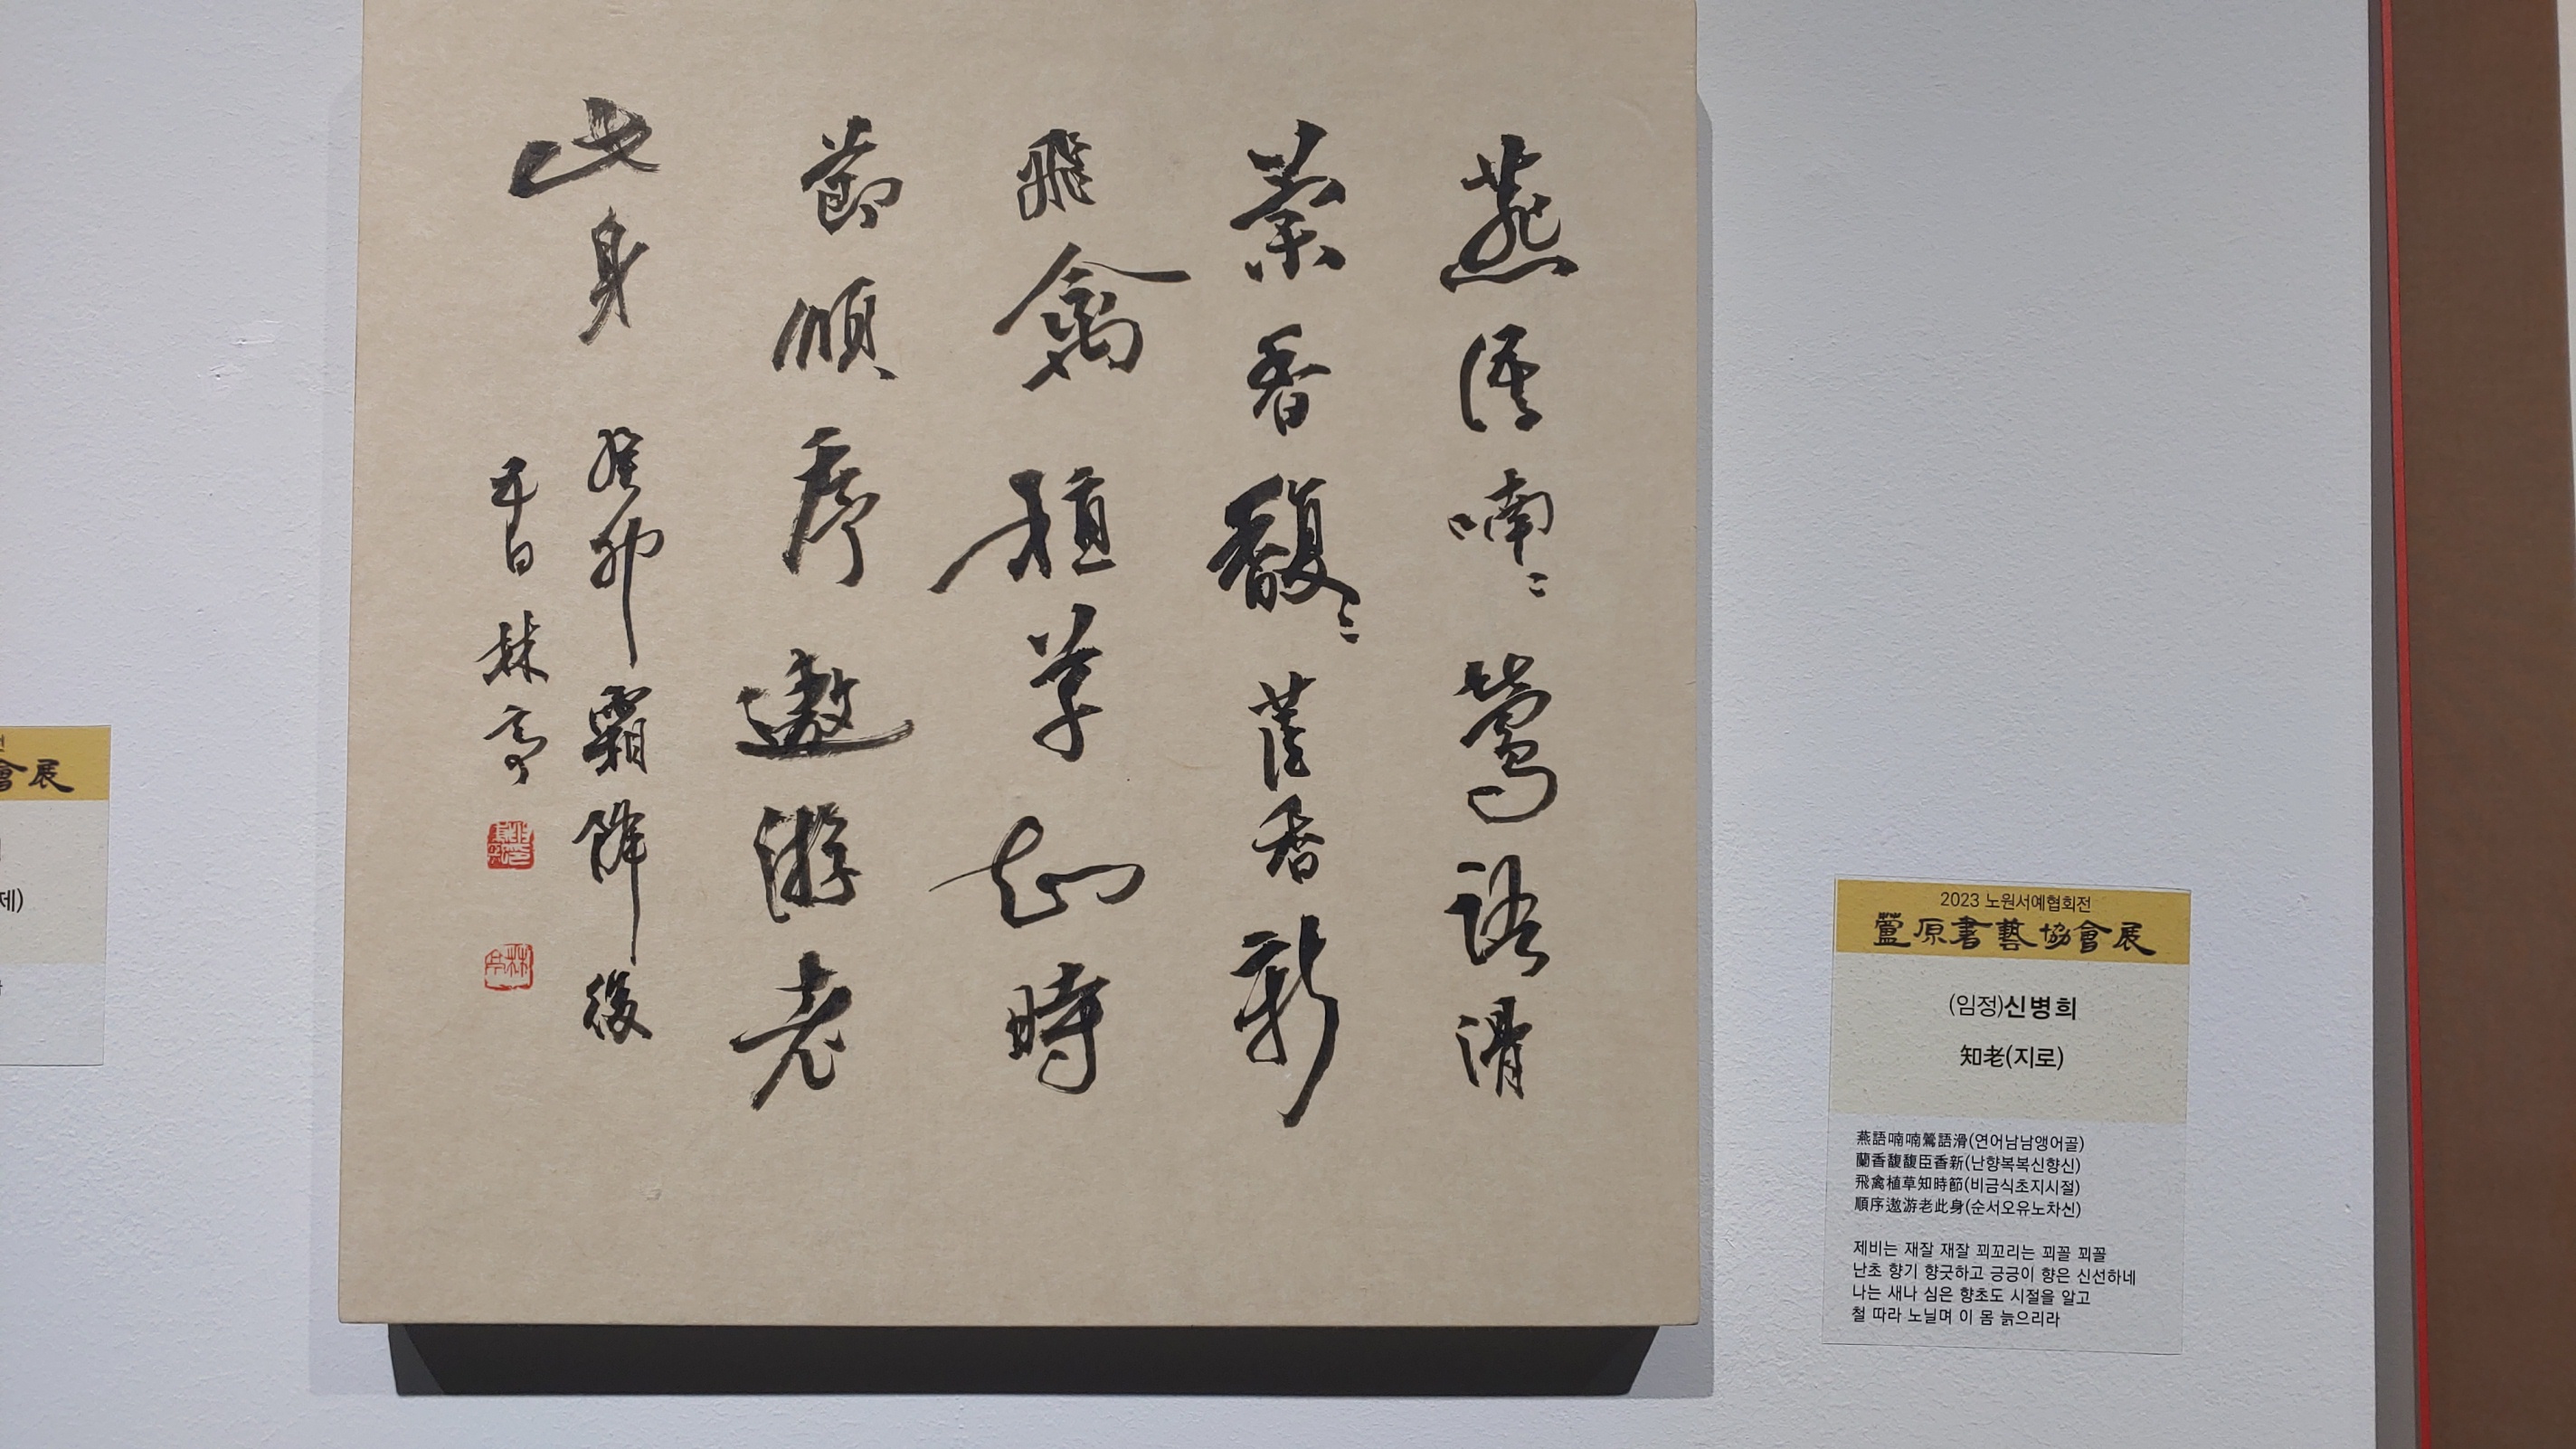 燕語喃〻鶯語滑
蘭香馥〻茝香新
飛禽植草知時
節順序遨游老
此身 癸卯霜降後
五日 林亭
2023 노원서예협회전
蘆原書藝協會展
(임정)신병희
知老(지로)
燕語喃喃鶯語滑(연어남남앵어골)
蘭香馥馥臣香新(난향복복신향신)
飛禽植草知時節(비금식초지시절)
順序遨游老此身(순서오유노차신)
제비는 재잘 재잘 꾀꼬리는 꾀꼴 꾀꼴
난초 향기 향긋하고 긍긍이 향은 신선하네
나는 새나 심은 향초도 시절을 알고
철 따라 노닐며 이 몸 늙으리라
會展
제)